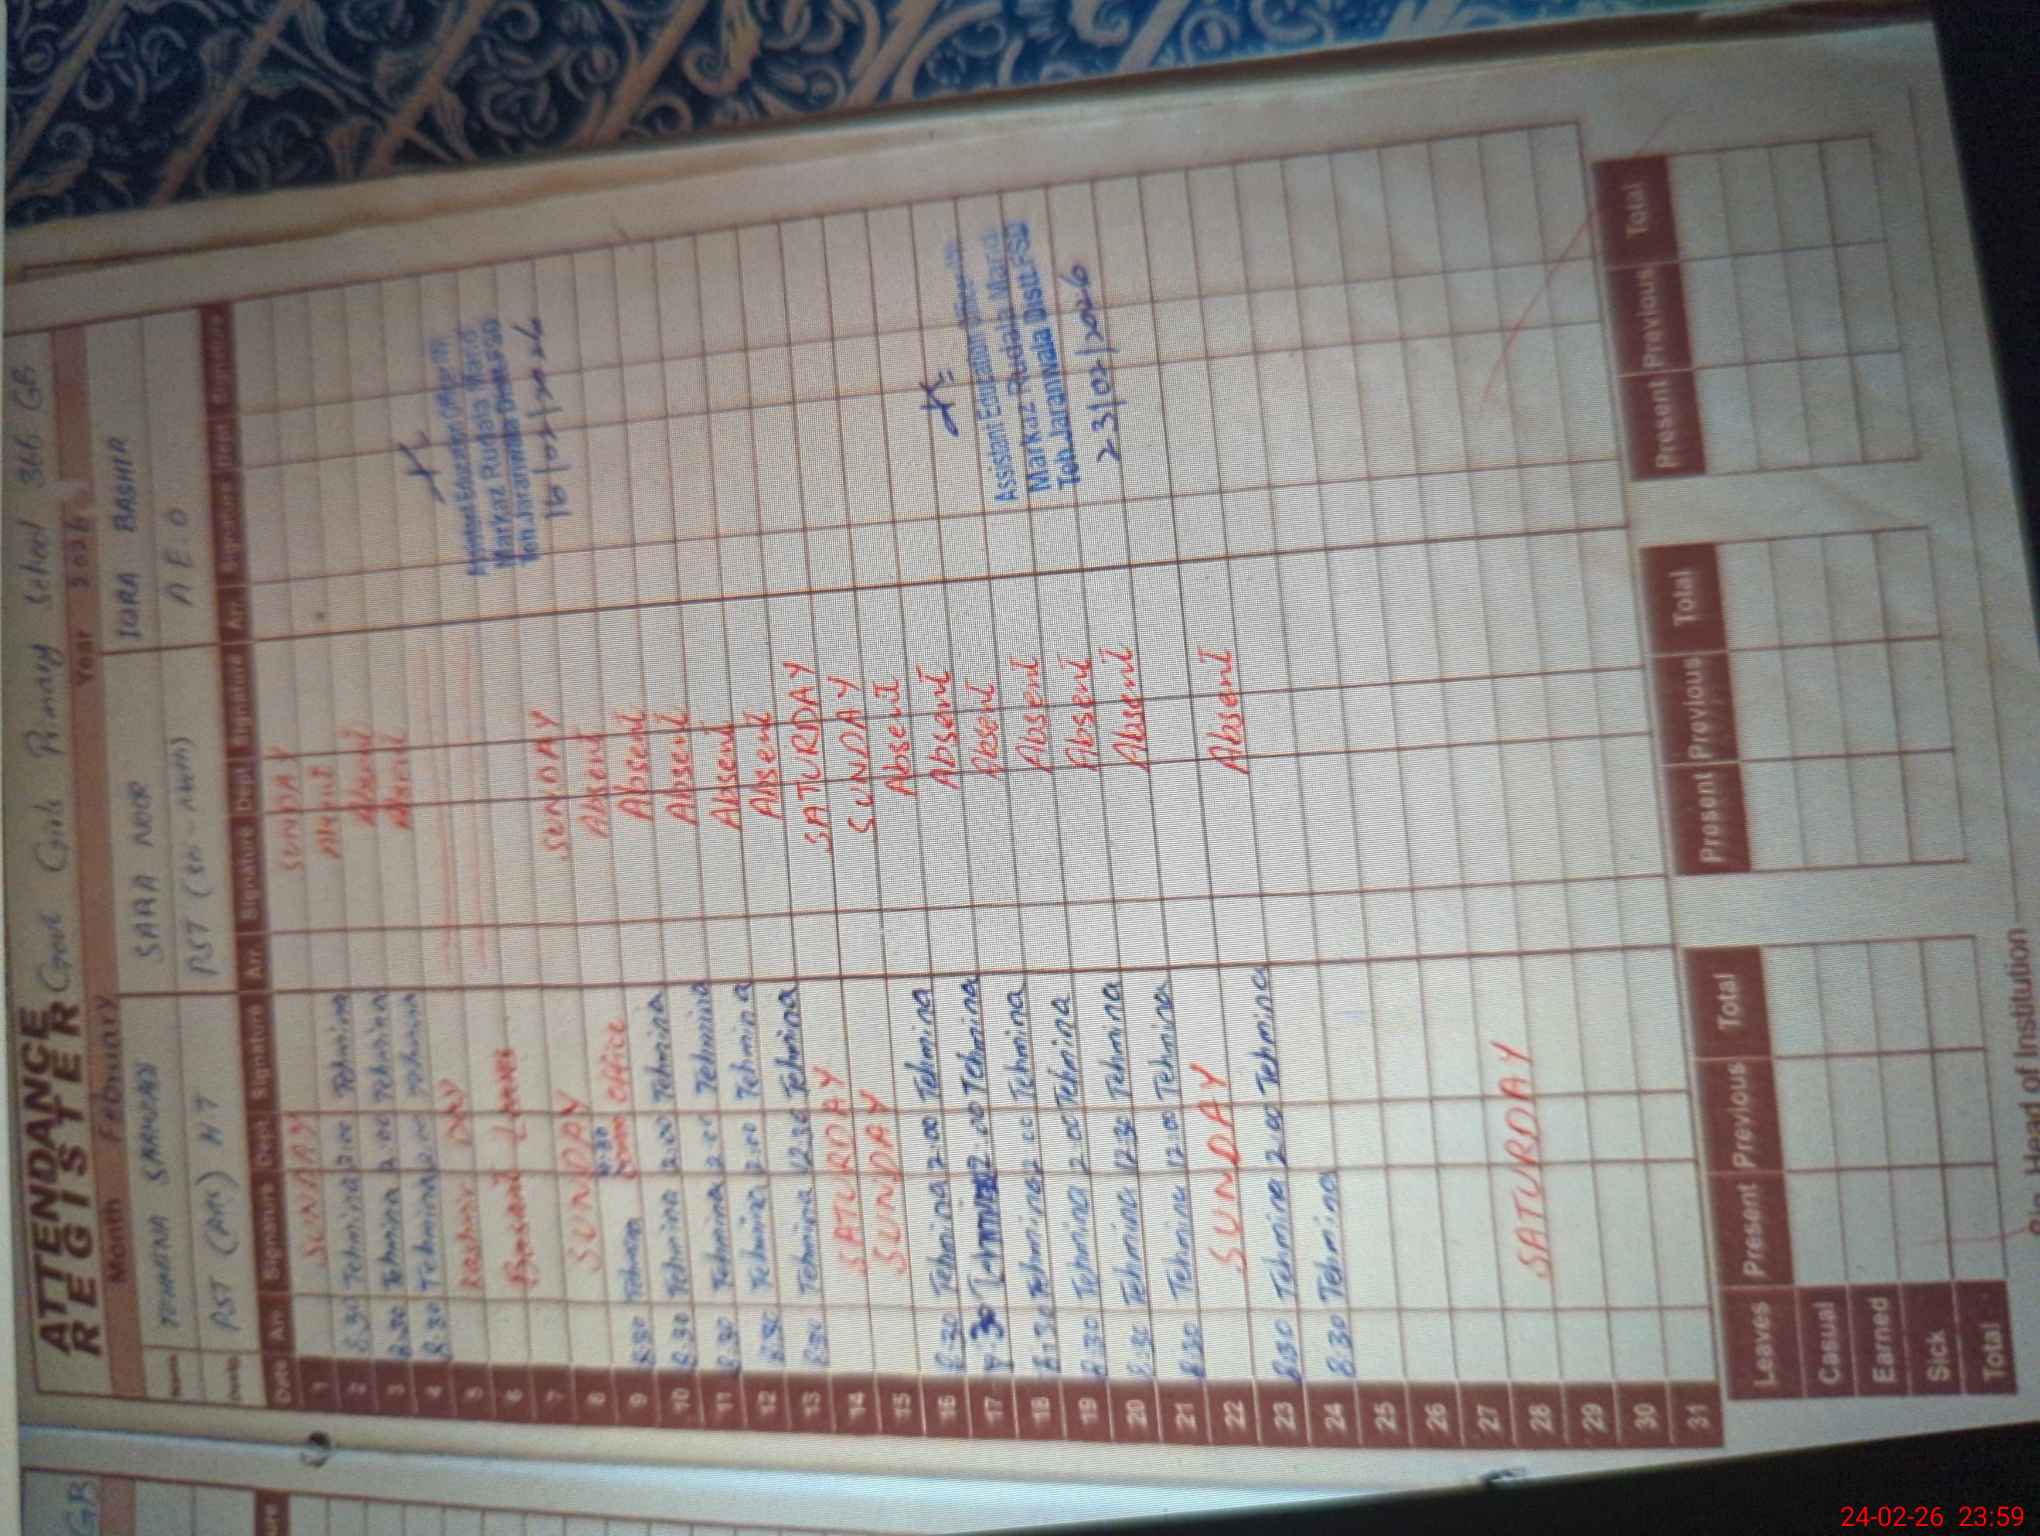 ATTENDANCE
REGISTER Govt Girls Primary School 366 GB
Month February Year 2026
Name TEHMINA SARWAR SARA NOOR IQRA BASHIR
PST (AM) HT PST A E O
Date Arr. Signature Dept Signature Arr. Signature Dept Signature Arr. Signature Dept Signature
1 SUNDAY SUNDAY
2 8.30 Tehmina 2.00 Tehmina Absent
3 8.30 Tehmina 2.00 Tehmina Absent
4 8.30 Tehmina 2.00 Tehmina Absent
5 Kashmir DAY
6
7
8 SUNDAY SUNDAY
9 8.30 Tehmina office Absent
10 8.30 Tehmina 2.00 Tehmina Absent
11 8.30 Tehmina 2.00 Tehmina Absent
12 8.30 Tehmina 2.00 Tehmina Absent
13 8.30 Tehmina 12.30 Tehmina Absent
14 SATURDAY SATURDAY
15 SUNDAY SUNDAY
16 8.30 Tehmina 2.00 Tehmina Absent
17 8.30 Tehmina 2.00 Tehmina Absent
18 8.30 Tehmina 2.00 Tehmina Absent
19 8.30 Tehmina 2.00 Tehmina Absent
20 8.30 Tehmina 12.30 Tehmina Absent
21 8.30 Tehmina 12.00 Tehmina Absent
22 SUNDAY
23 8.30 Tehmina 2.00 Tehmina Absent
24 8.30 Tehmina
25
26
27
28 SATURDAY
29
30
31
Assistant Education Officer
Markaz Rudala Mandi
Teh.Jaranwala Distt.FSD
16/02/2026
Assistant Education Officer
Markaz Rudala Mandi
Teh.Jaranwala Distt.FSD
23/02/2026
Leaves Present Previous Total Present Previous Total Present Previous Total
Casual
Earned
Sick
Total
Head of Institution
GB
24-02-26 23:59